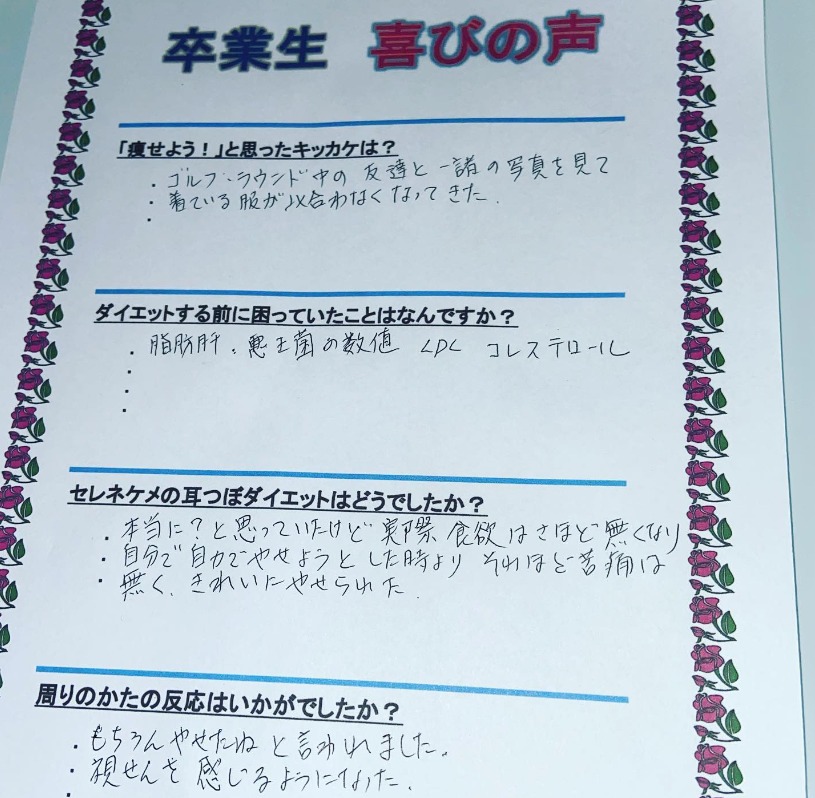 卒業生 喜びの声
「痩せよう！」と思ったキッカケは？
・ゴルフ・ラウンド中の 友達と一諸の写真を見て
・着ている服が似合わなくなってきた.
・
ダイエットする前に困っていたことはなんですか？
・脂肪肝、悪玉菌の数値 LDL コレステロール
・
・
・
セレネケメの耳つぼダイエットはどうでしたか？
・本当に？と思っていたけど 実際 食欲はさほど無くなり
・自分で自力でやせようとした時より それほど苦痛は
・無く、きれいにやせられた.
周りのかたの反応はいかがでしたか？
・もちろんやせたねと言われました.
・視せんを感じるようになった.
・